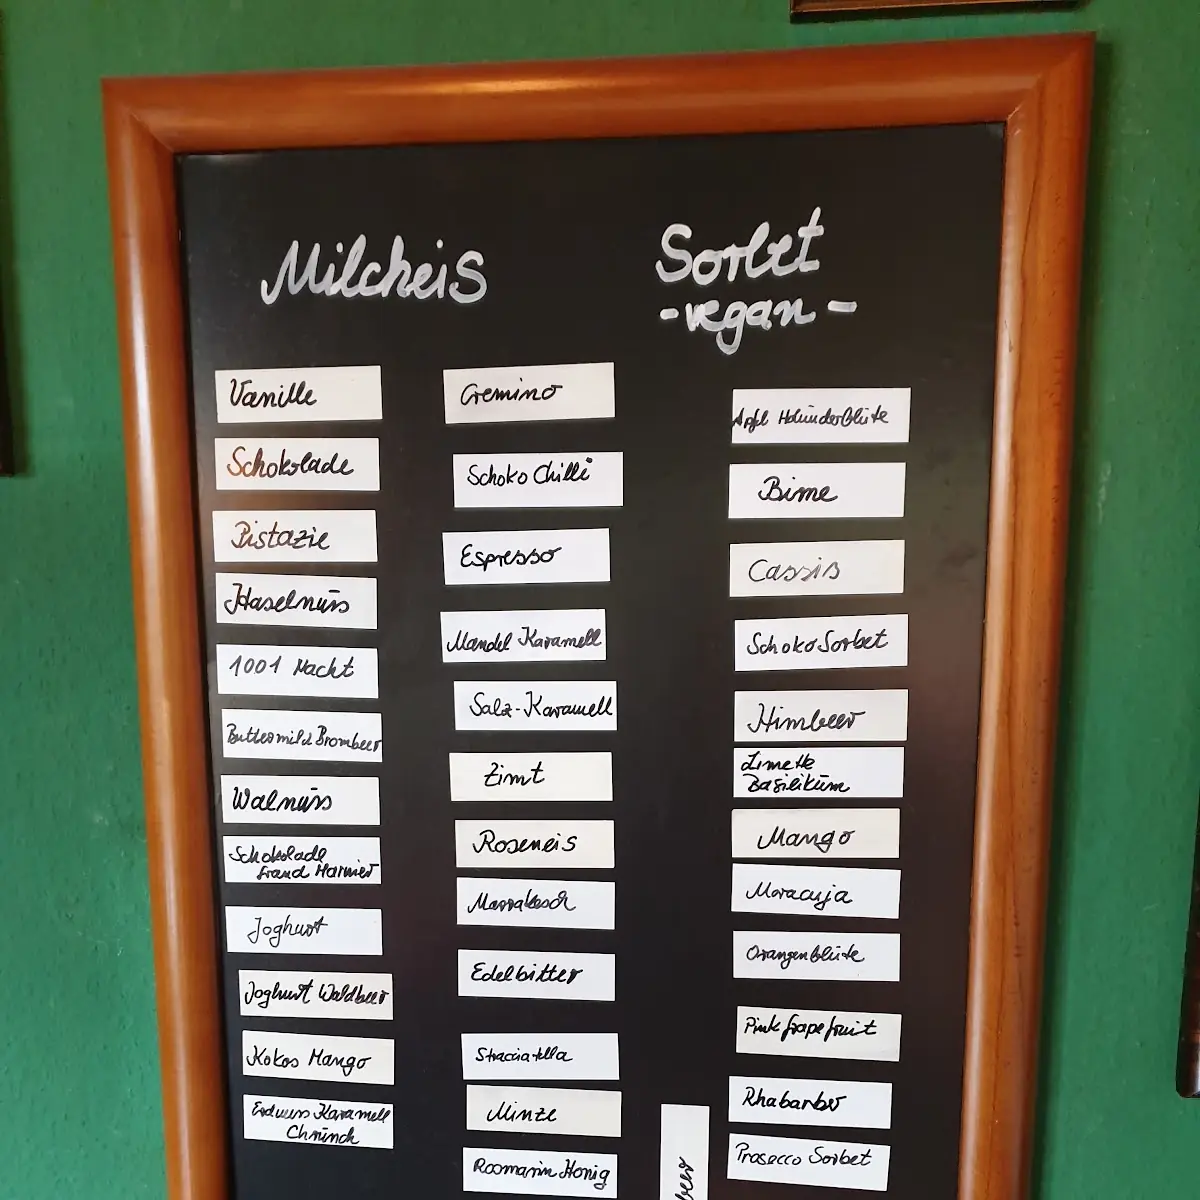 Milcheis
Vanille
Schokolade
Pistazie
Haselnuss
1001 Nacht
Buttermilch Brombeer
Walnuss
Schokolade
Grand Marnier
Joghurt
Joghurt Waldbeer
Kokos Mango
Erdnuss Karamell
Chrunch
Cremino
Schoko Chilli
Espresso
Mandel Karamell
Salz-Karamell
Zimt
Roseneis
Marrakesch
Edelbitter
Stracciatella
Minze
Rosmarin Honig
Sorbet
-vegan-
Apfl Holunderblüte
Birne
Cassis
Schoko Sorbet
Himbeer
Limette
Basilikum
Mango
Maracuja
Orangenblüte
Pink Grapefruit
Rhabarber
Prosecco Sorbet